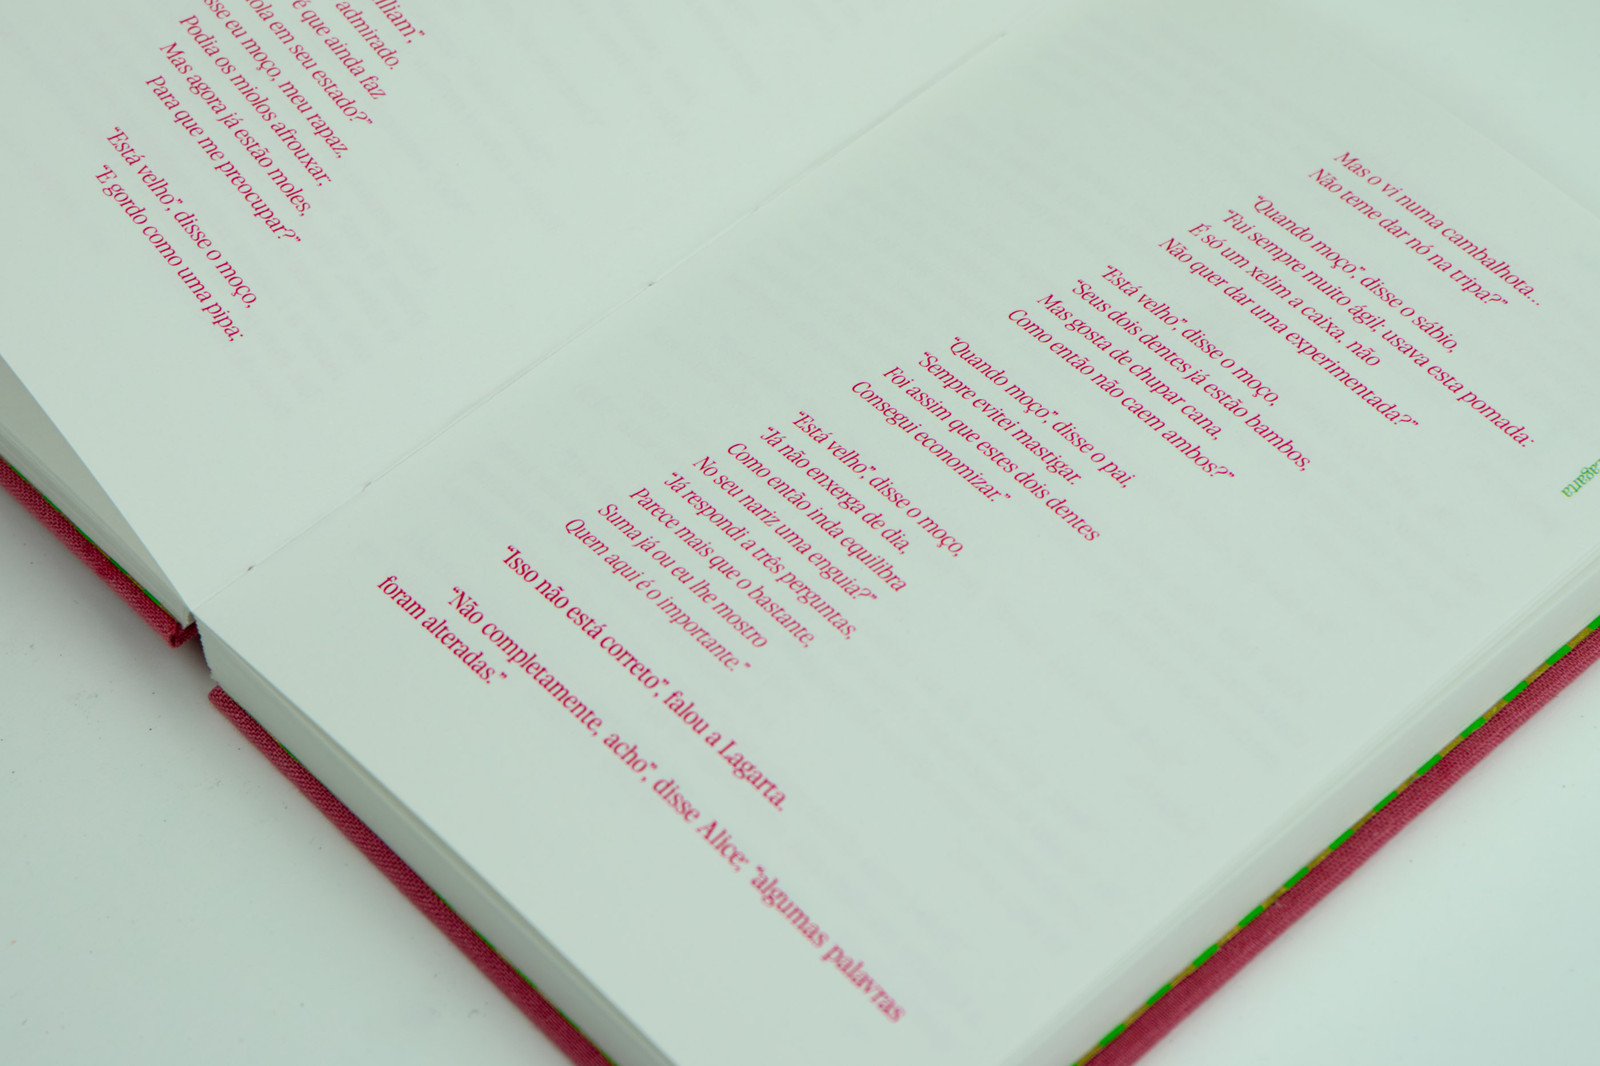 admirado.
é que ainda faz
em seu estado?”
eu moço, meu rapaz,
Podia os miolos afrouxar;
Mas agora já estão moles,
Para que me preocupar?”
“Está velho”, disse o moço,
“E gordo como uma pipa;
Mas o vi numa cambalhota...
Não teme dar nó na tripa?”
“Quando moço”, disse o sábio,
“Fui sempre muito ágil; usava esta pomada:
É só um xelim a caixa, não
Não quer dar uma experimentada?”
“Está velho”, disse o moço,
“Seus dois dentes já estão bambos,
Mas gosta de chupar cana,
Como então não caem ambos?”
“Quando moço”, disse o pai,
“Sempre evitei mastigar.
Foi assim que estes dois dentes
Consegui economizar.”
“Está velho”, disse o moço,
“Já não enxerga de dia,
Como então inda equilibra
No seu nariz uma enguia?”
“Já respondi a três perguntas,
Parece mais que o bastante,
Suma já ou eu lhe mostro
Quem aqui é o importante.”
“Isso não está correto”, falou a Lagarta.
“Não completamente, acho”, disse Alice; “algumas palavras
foram alteradas.”